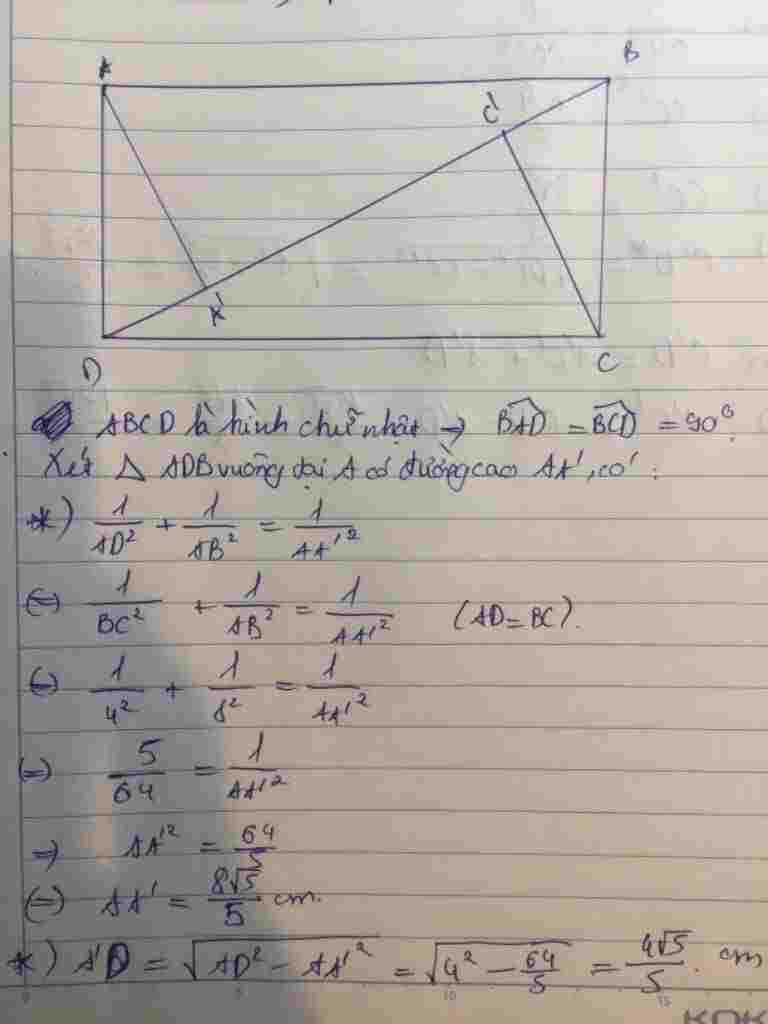 A
B
C'
A'
D
C
ABCD là hình chữ nhật → BAD = BCD = 90°.
Xét Δ ADB vuông tại A có đường cao AA', có :
*) 1/AD² + 1/AB² = 1/AA'²
(=) 1/BC² + 1/AB² = 1/AA'² (AD = BC).
(=) 1/4² + 1/8² = 1/AA'²
(=) 5/64 = 1/AA'²
=) AA'² = 64/5
(=) AA' = 8√5/5 cm.
*) A'D = √(AD² - AA'²) = √(4² - 64/5) = 4√5/5 . cm
10
15